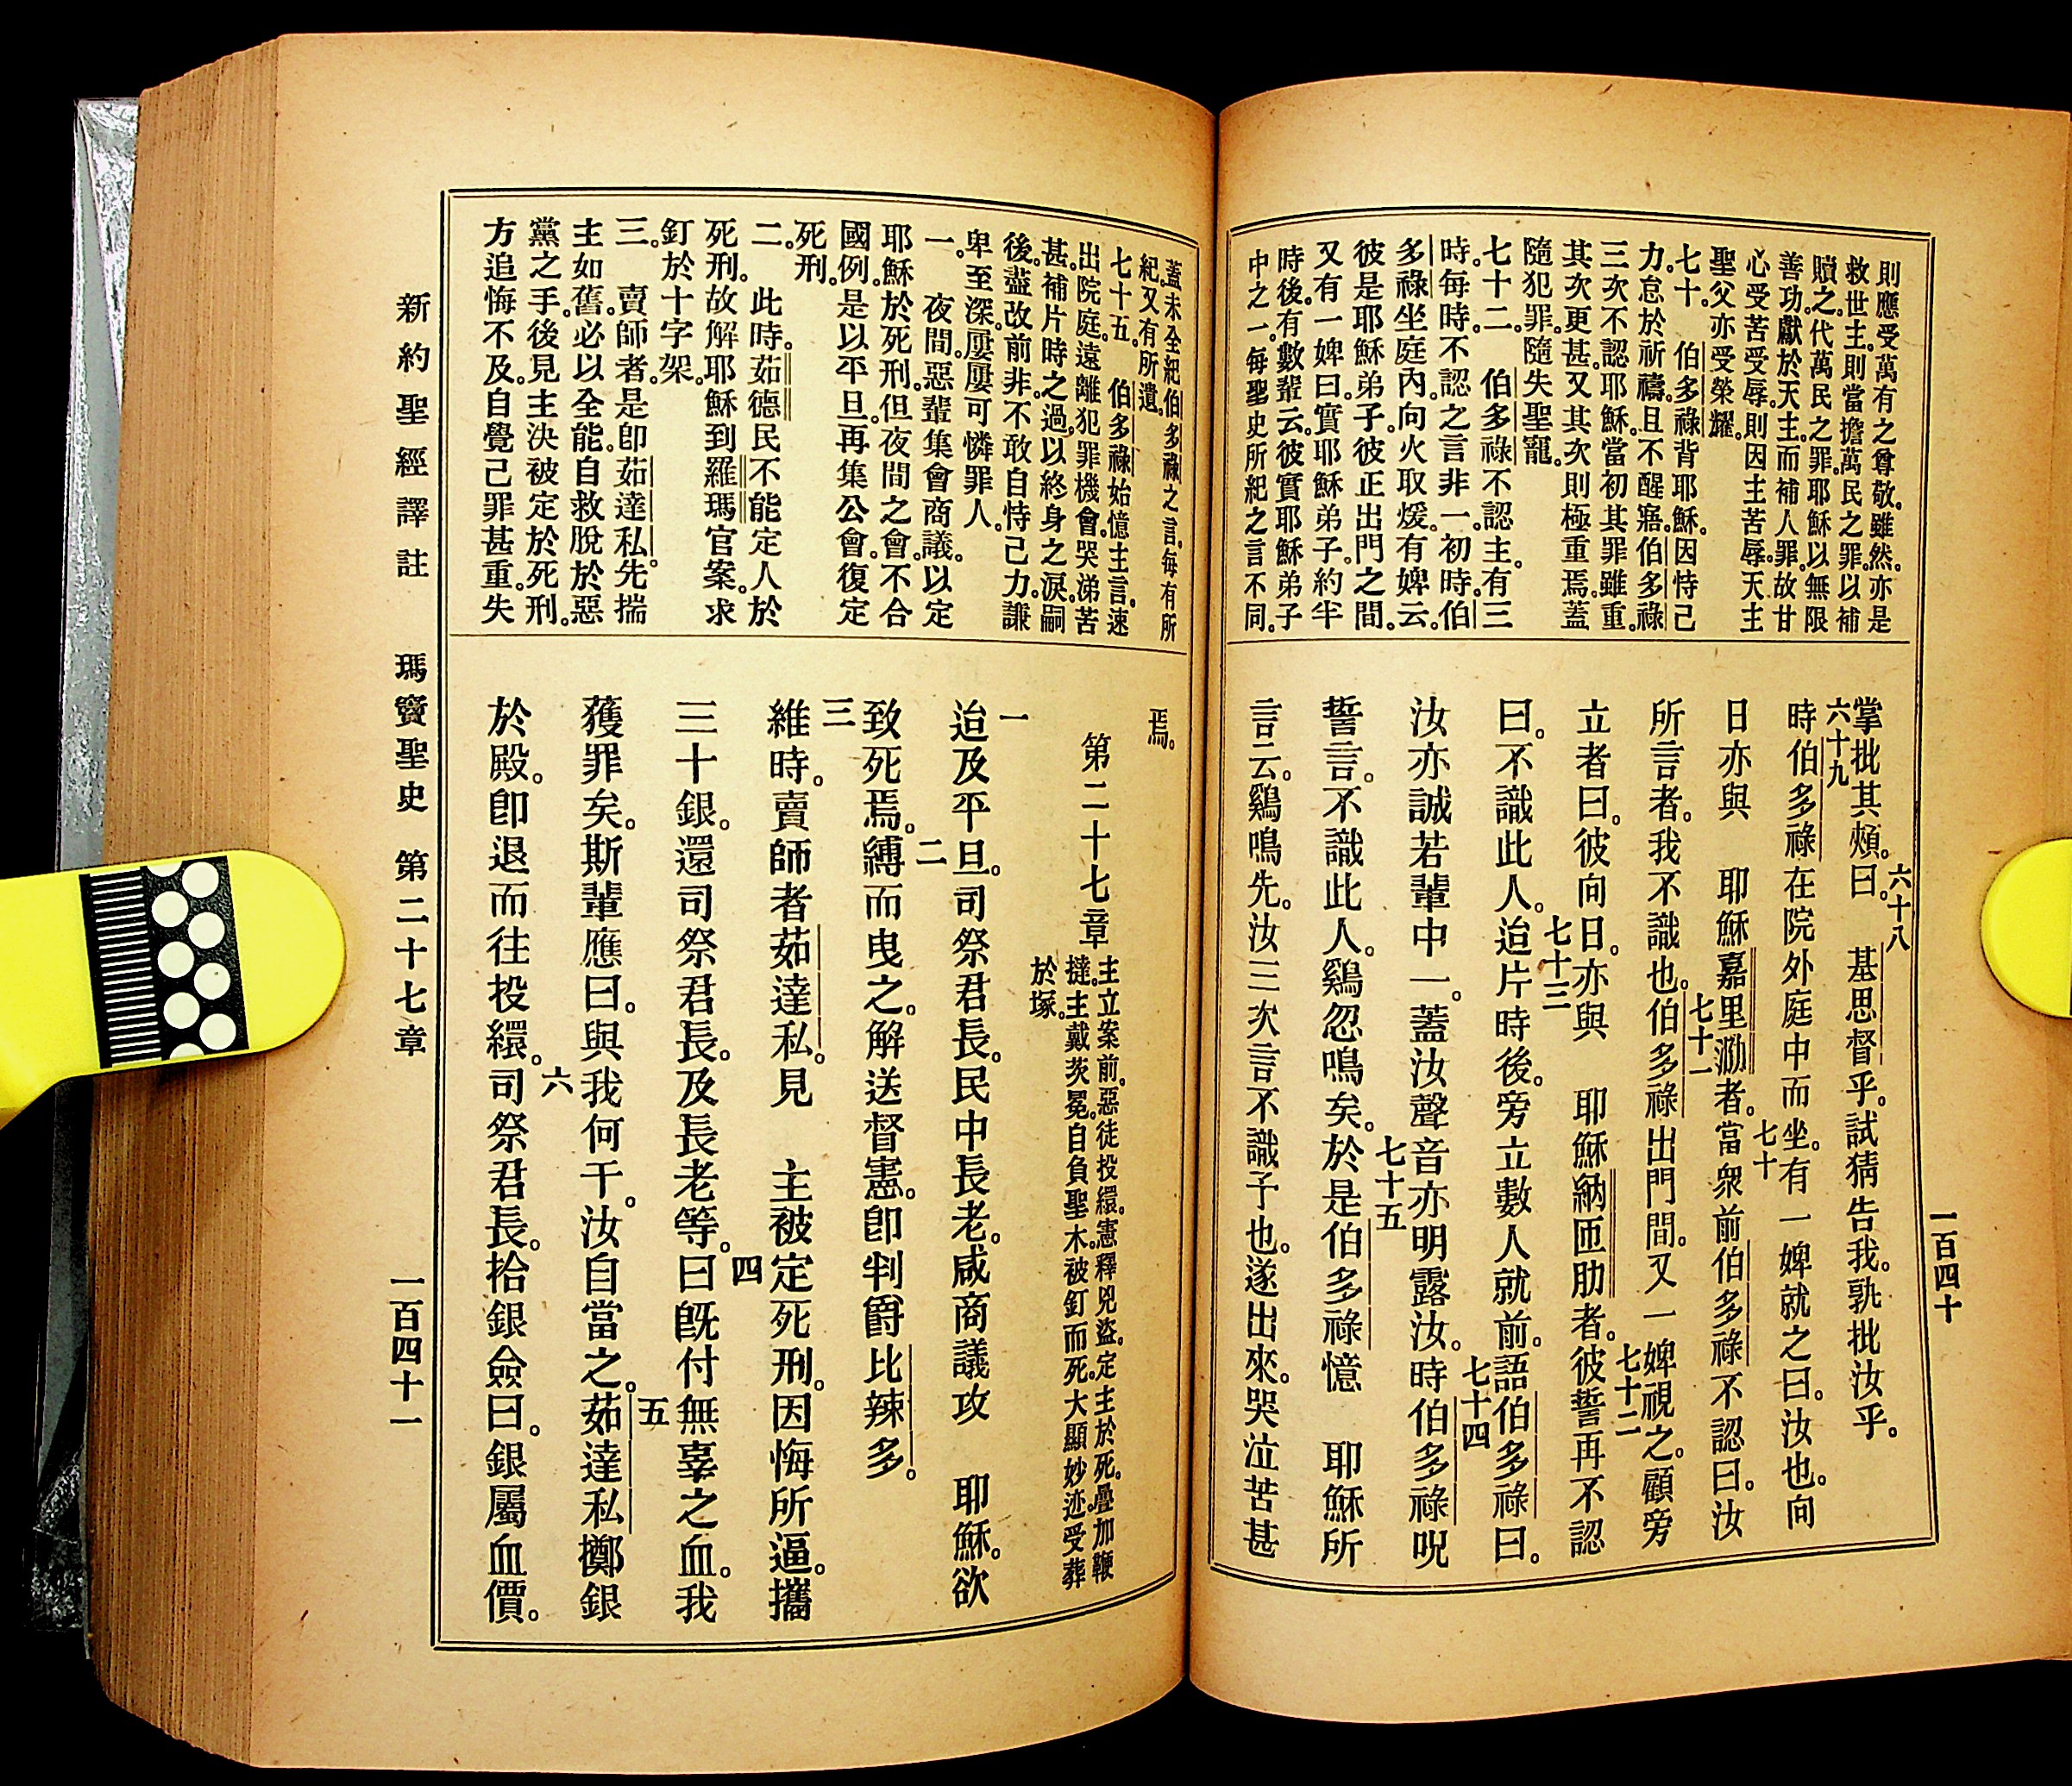 一百四十
則應受萬有之尊敬。雖然。亦是
救世主。則當擔萬民之罪。以補
贖之。代萬民之罪。耶穌以無限
善功。獻於天主。而補人罪。故甘
心受苦受辱。則因主苦辱。天主
聖父亦受榮耀。
七十。 伯多祿背耶穌。因恃己
力。怠於祈禱。且不醒寤。伯多祿
三次不認耶穌。當初其罪雖重。
其次更甚。又其次則極重焉。蓋
隨犯罪。隨失聖寵。
七十二。 伯多祿不認主。有三
時。每時不認之言非一。初時。伯
多祿坐庭內。向火取煖。有婢云。
彼是耶穌弟子。彼正出門之間。
又有一婢曰。實耶穌弟子。約半
時後。有數輩云。彼實耶穌弟子
中之一。每聖史所紀之言不同。
掌批其頰。六十八曰。 基思督乎。試猜告我。孰批汝乎。
六十九時伯多祿在院外庭中而坐。有一婢就之曰。汝也。向
日亦與 耶穌嘉里泐者。七十當衆前伯多祿不認曰。汝
所言者。我不識也。七十一伯多祿出門間。又一婢視之。顧旁
立者曰。彼向日。亦與 耶穌納匝肋者。七十二彼誓再不認
曰。不識此人。七十三迨片時後。旁立數人就前。語伯多祿曰。
汝亦誠若輩中一。蓋汝聲音亦明露汝。七十四時伯多祿呪
誓言。不識此人。鷄忽鳴矣。七十五於是伯多祿憶 耶穌所
言云。鷄鳴先。汝三次言不識予也。遂出來。哭泣苦甚
蓋未全紀伯多祿之言。每有所
紀。又有所遺。
七十五。 伯多祿始憶主言。速
出院庭。遠離犯罪機會。哭涕苦
甚。補片時之過。以終身之淚。嗣
後。盡改前非。不敢自恃己力。謙
卑至深。屢屢可憐罪人。
一。 夜間。惡輩集會商議。以定
耶穌於死刑。但夜間之會。不合
國例。是以平旦再集公會。復定
死刑。
二。 此時。茹德民不能定人於
死刑。故解耶穌到羅瑪官案。求
釘於十字架。
三。 賣師者。是卽茹達私。先揣
主如舊。必以全能。自救脫於惡
黨之手。後見主決被定於死刑。
方追悔不及。自覺己罪甚重。失
焉。
第二十七章
主立案前。惡徒投繯。憲釋兇盜。定主於死。疊加鞭
撻。主戴茨冕。自負聖木。被釘而死。大顯妙迹。受葬
於塚。
一迨及平旦。司祭君長。民中長老。咸商議攻 耶穌。欲
致死焉。二縛而曳之。解送督憲。卽判爵比辣多。
三維時。賣師者茹達私。見 主被定死刑。因悔所逼。攜
三十銀。還司祭君長。及長老等。四曰旣付無辜之血。我
獲罪矣。斯輩應曰。與我何干。汝自當之。五茹達私擲銀
於殿。卽退而往投繯。六司祭君長。拾銀僉曰。銀屬血價。
新約聖經譯註 瑪竇聖史 第二十七章 一百四十一